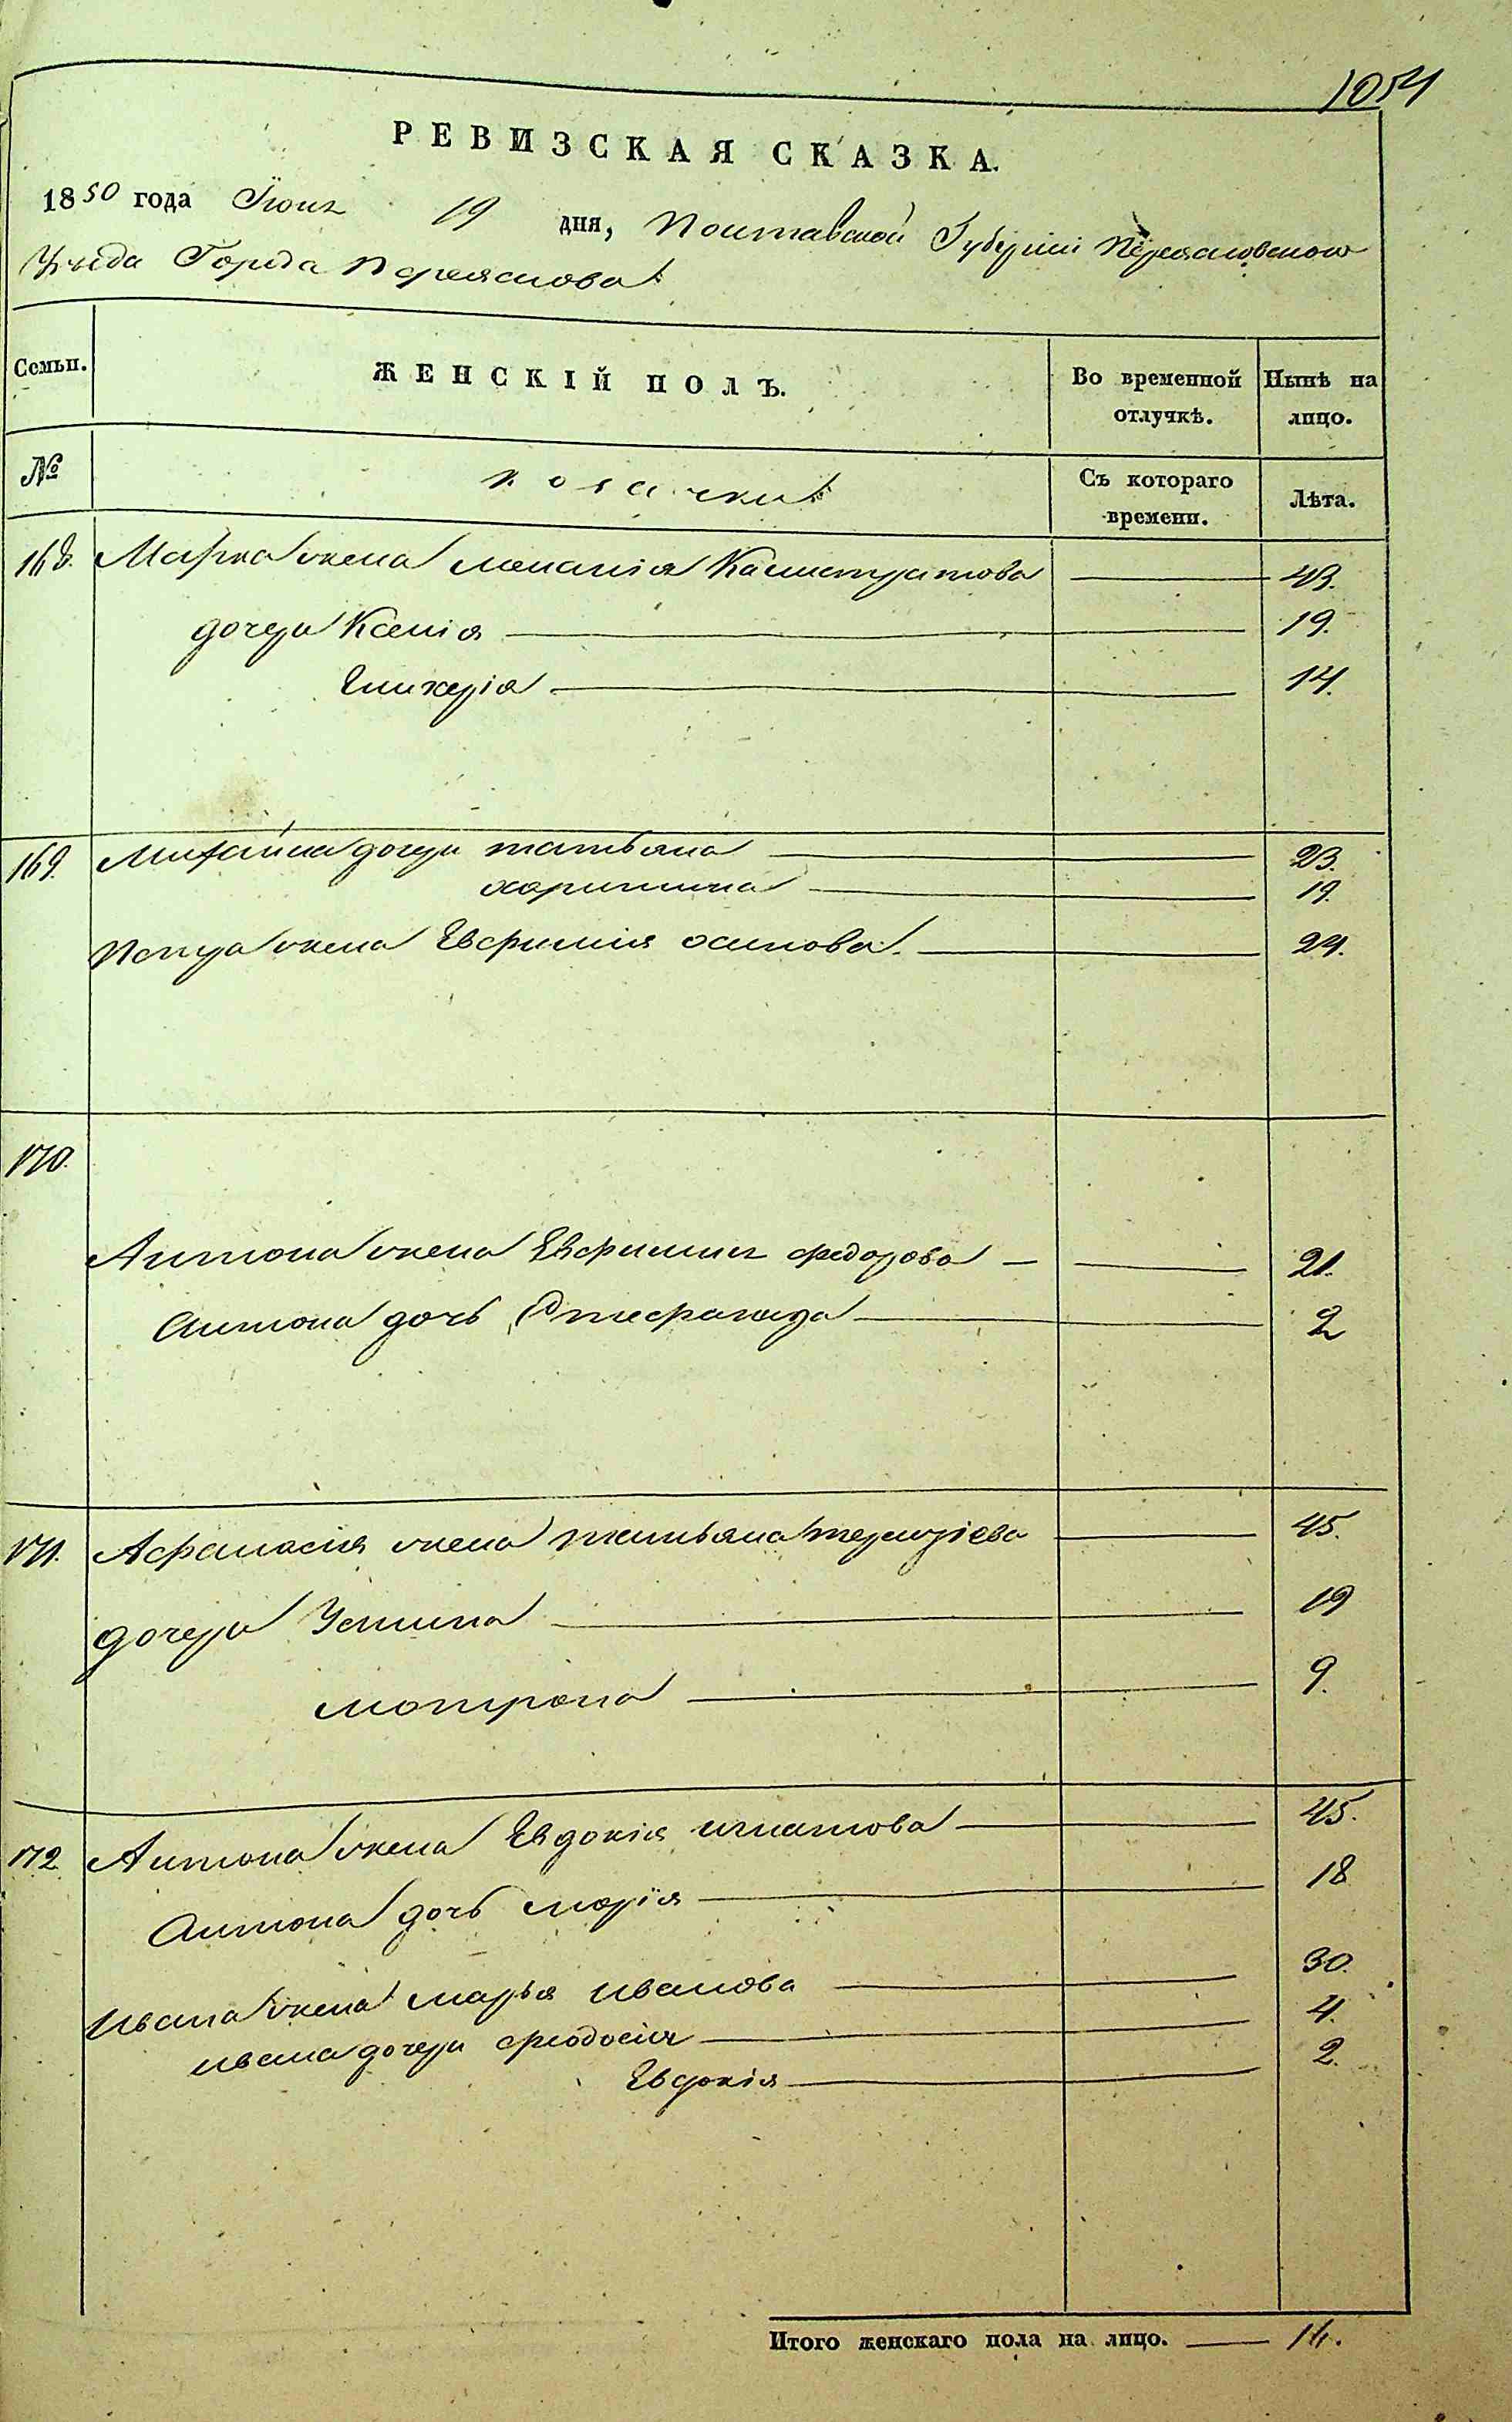 1054
РЕВИЗСКАЯ СКАЗКА.
1850 года Іюня 19 дня, Полтавской Губерніи Переясловского
Уезда Города Переяслова
Семьи. ЖЕНСКІЙ ПОЛЪ. Во временной отлучкѣ. Нынѣ на лицо.
№ козачки Съ котораго времени. Лѣта.
168. Марка жена меланія Калистратова 43.
дочери Ксенія 19.
Гликерія 14.
169. Михайла дочери татьяна 23.
харитина 19.
Петра жена Евфимія осипова 24.
170.
Антона жена Евфимия федорова 21.
Антона дочь Стефанида 2
171. Афанасія жена татьяна терентіева 45.
дочери Устина 19
мотрона 9.
172 Антона жена Евдокія игнатова 45.
Антона дочь марія 18
Ивана жена марья иванова 30.
ивана дочери феодосия 4.
Евдокія 2.
Итого женскаго пола на лицо. 16.